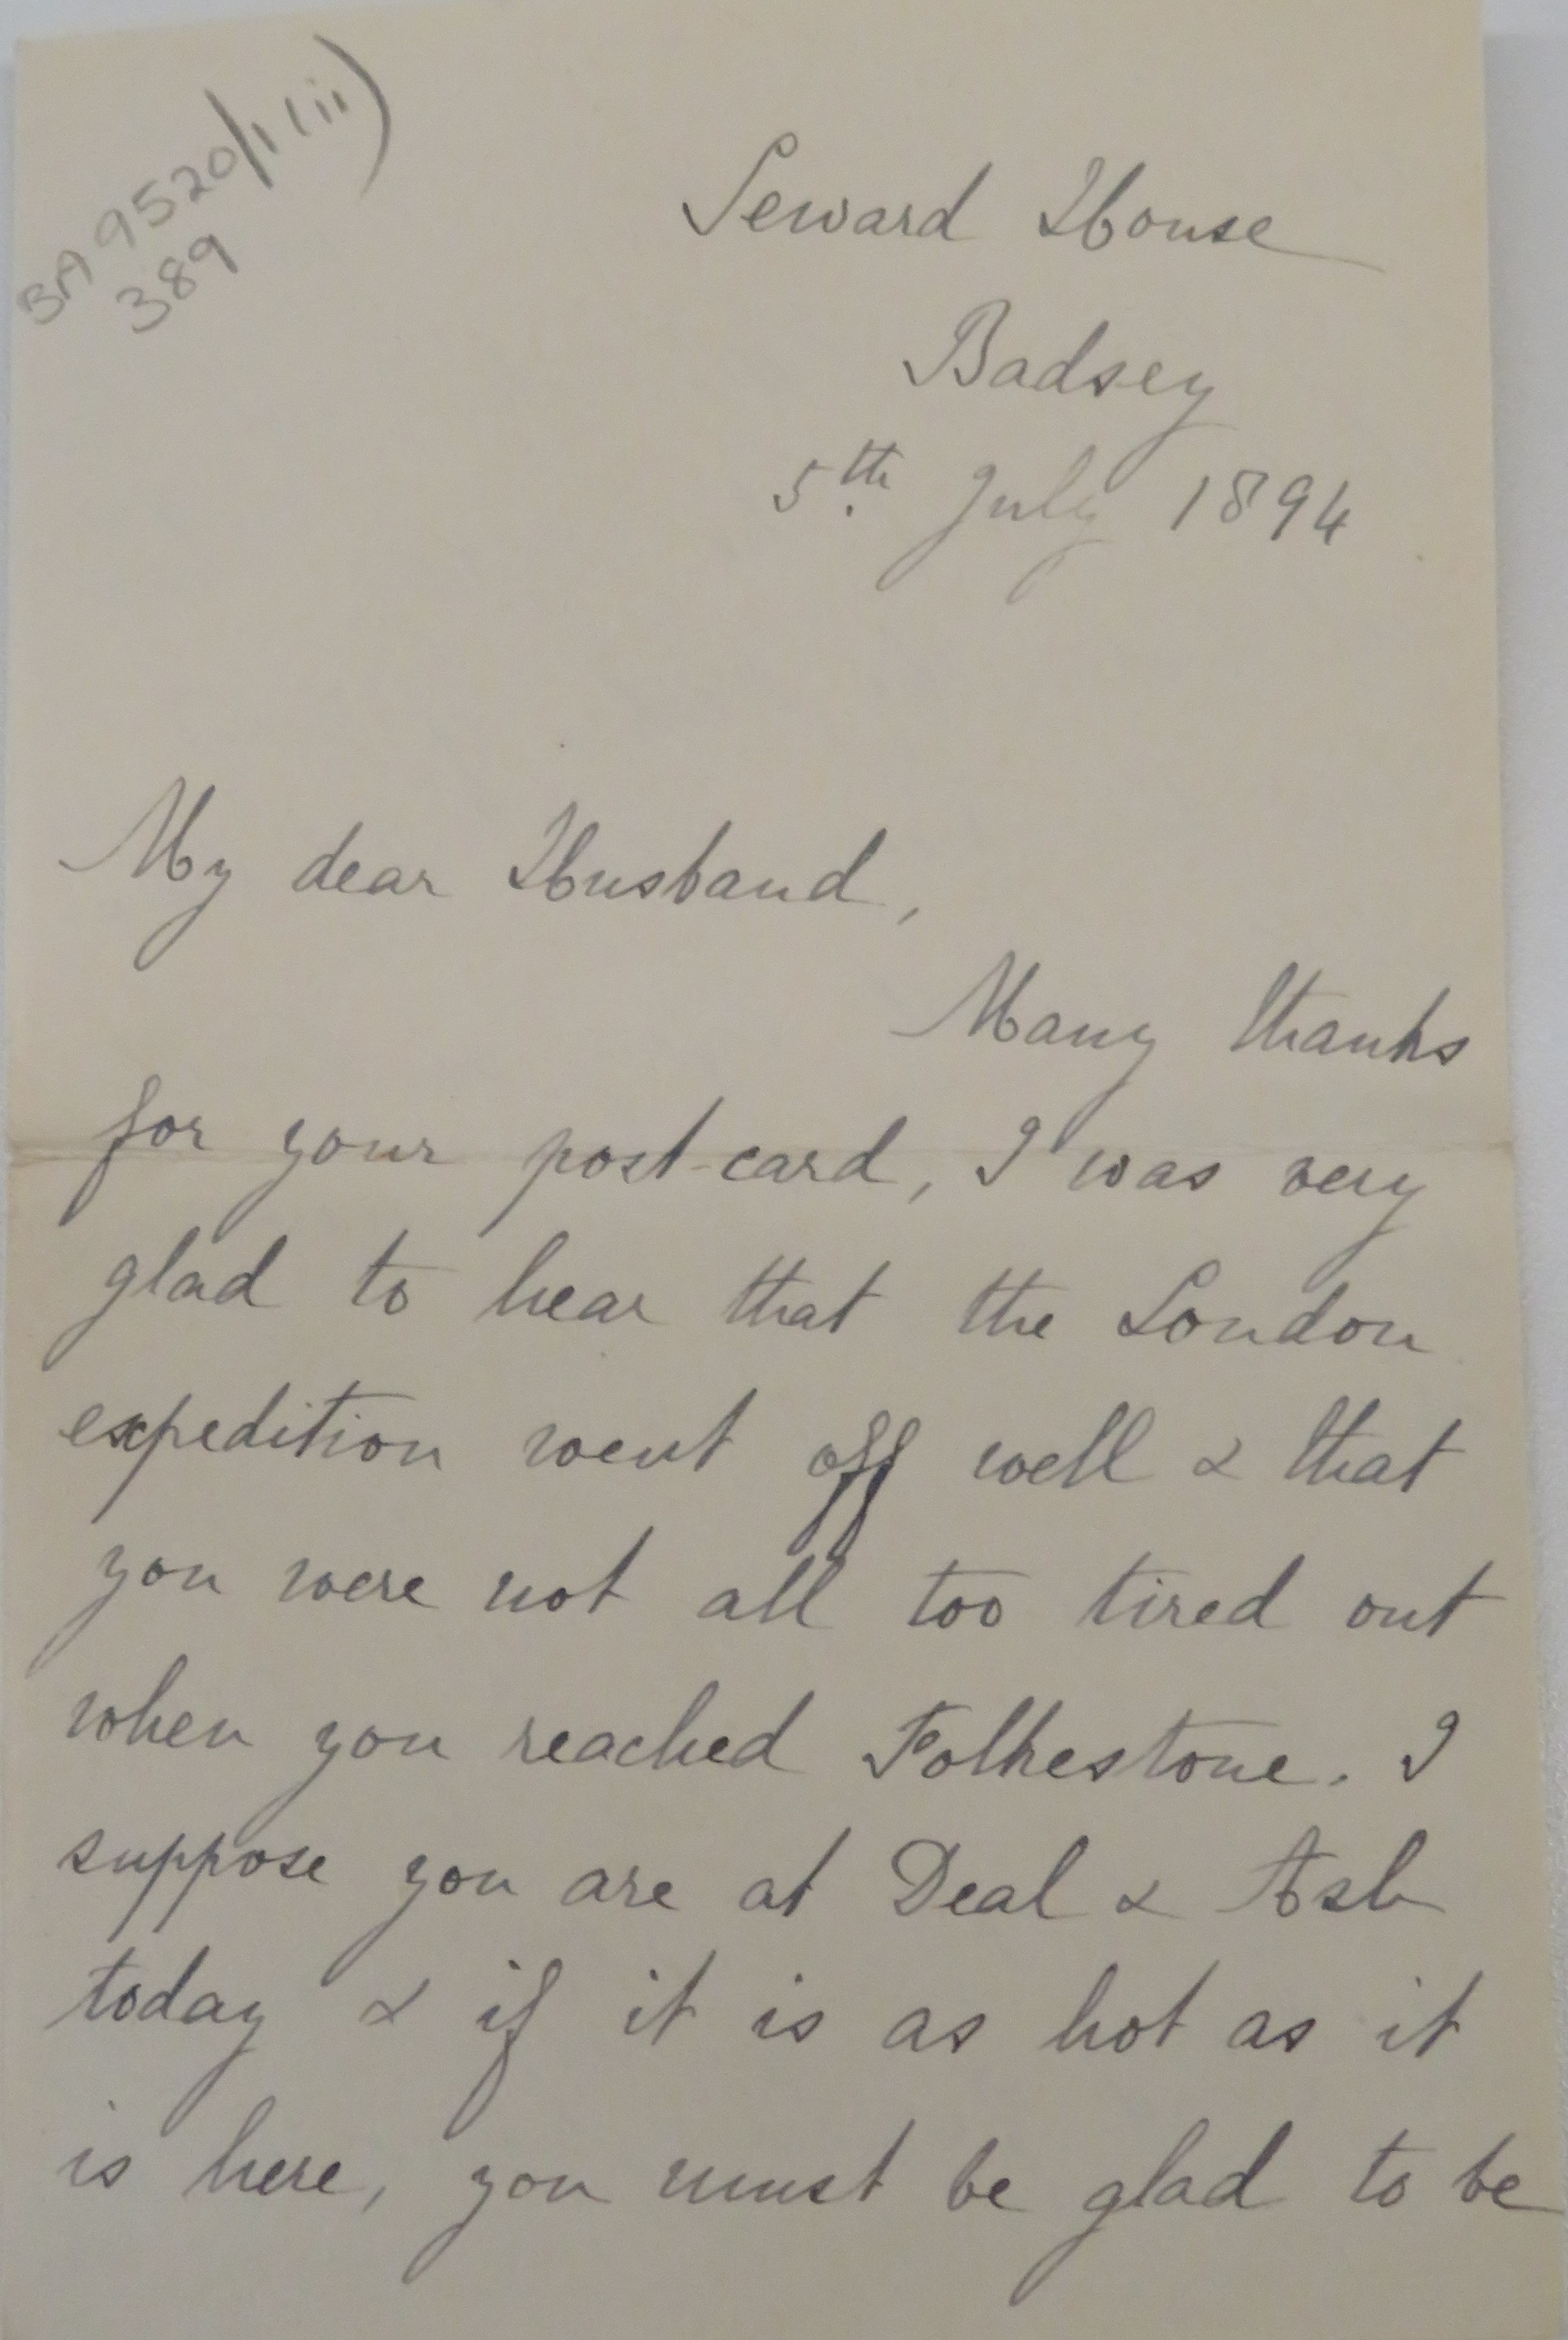 BA 9520/1(ii)
389
Seward House
Badsey
5th. July 1894
My dear Husband,
Many thanks
for your post-card, I was very
glad to hear that the London
expedition went off well & that
you were not all too tired out
when you reached Folkestone. I
suppose you are at Deal & Ash
today & if it is as hot as it
is here, you must be glad to be